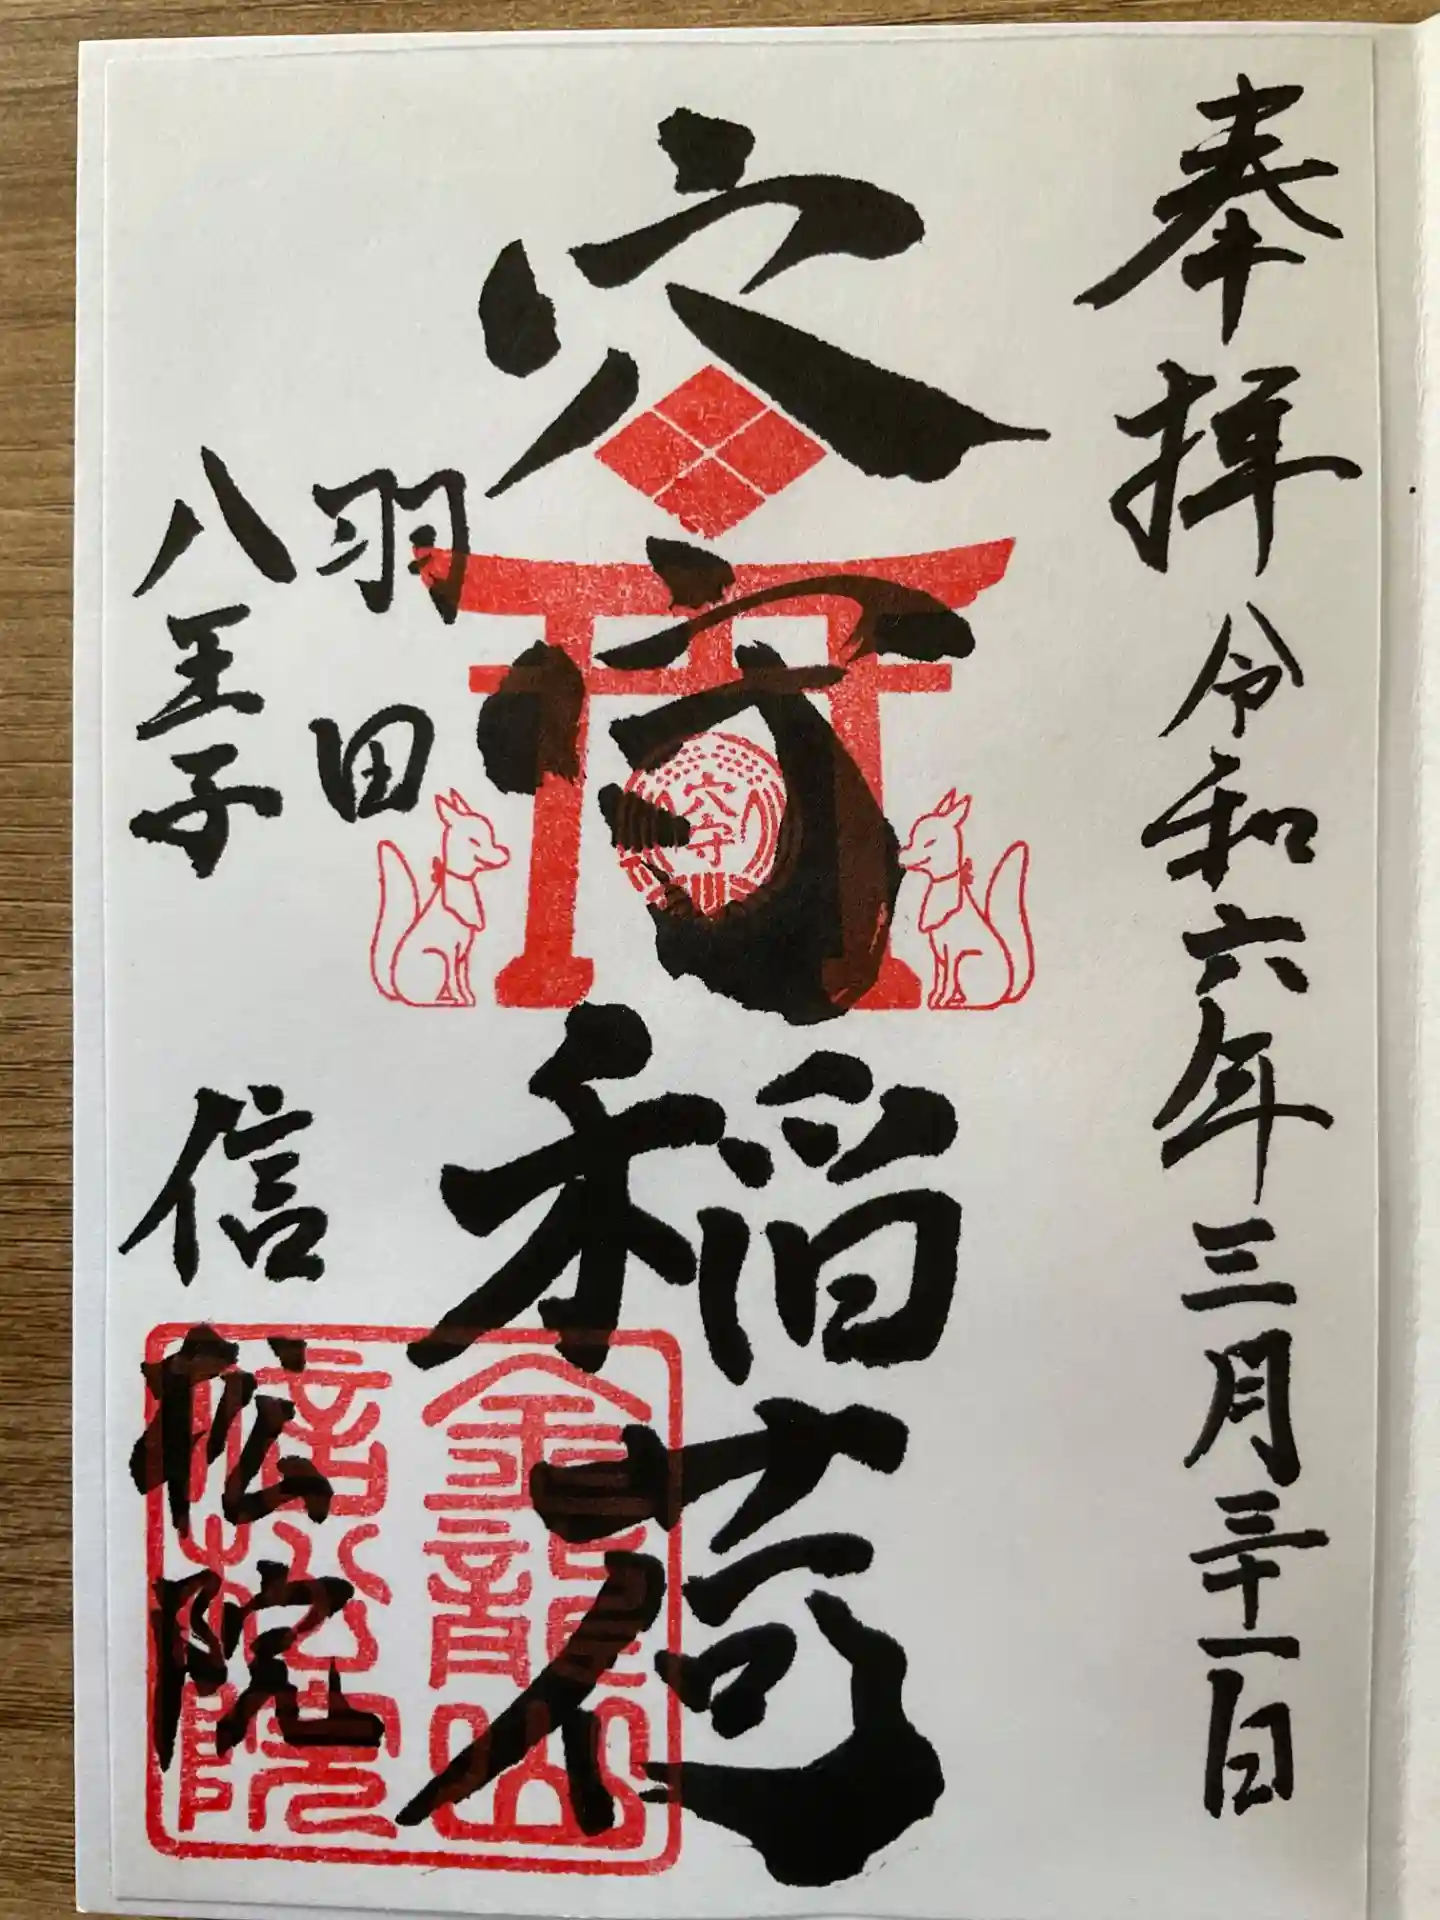 奉拝 令和六年三月三十一日
穴守稲荷
穴守
羽田
八王子 信松院
金龍山
信松院